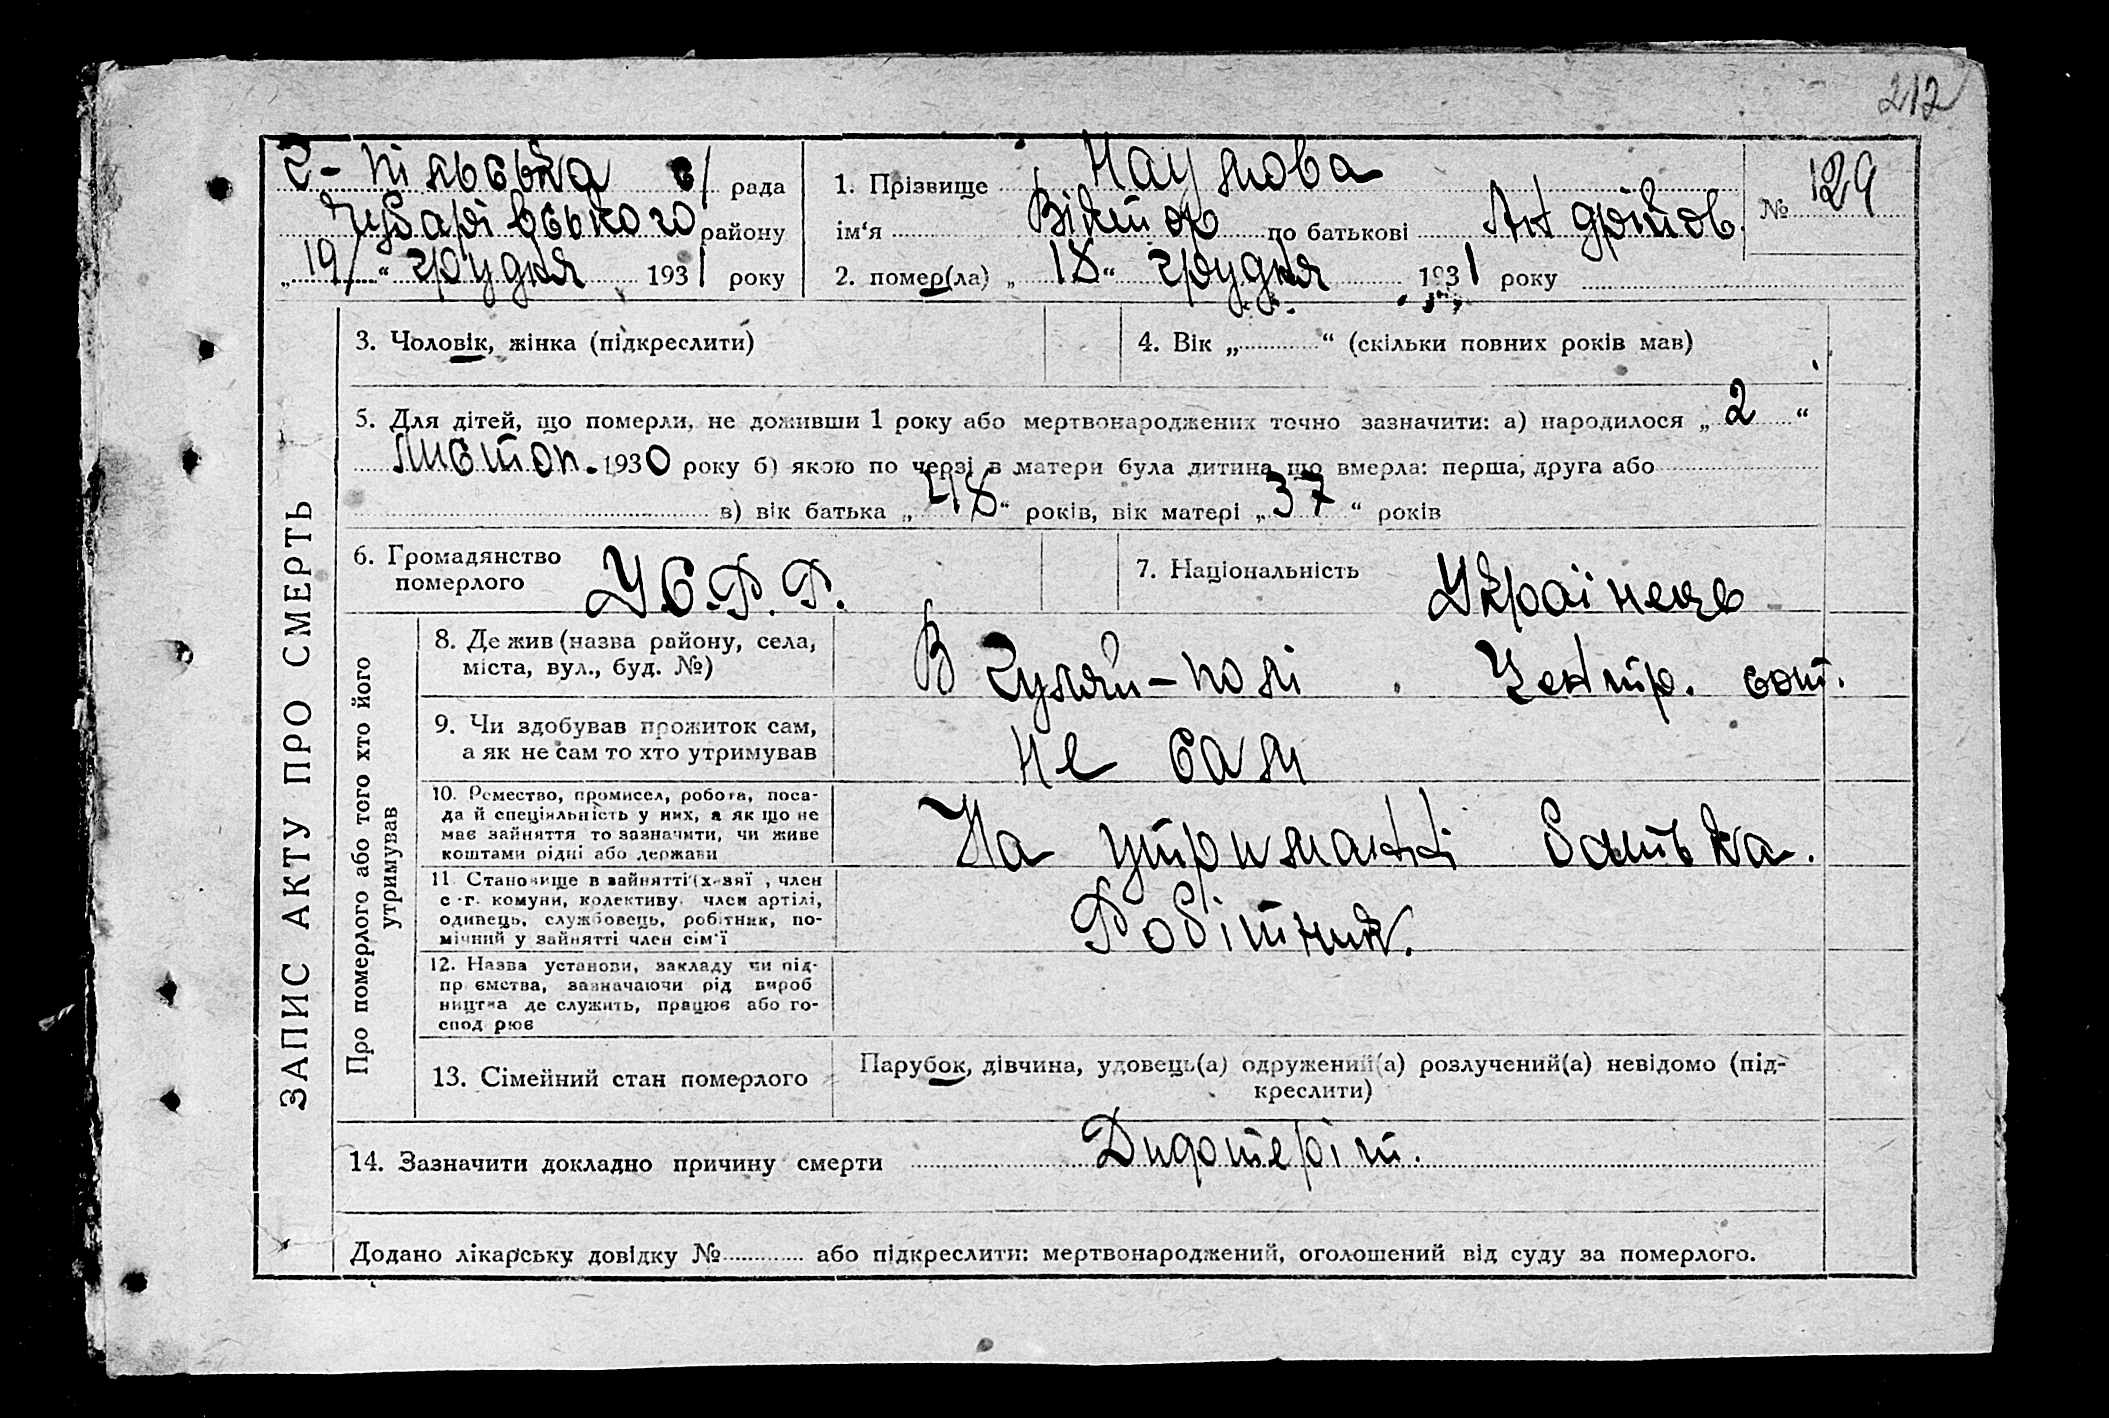 212
Г-пільська с/ рада
Чубарівського району
„19/“ грудня 1931 року
1. Прізвище Наумова
ім‘я Віктор по батькові Андрійов.
№ 129
2. помер(ла) „18“ грудня 1931 року
3. Чоловік, жінка (підкреслити)
4. Вік „ “ (скільки повних років мав)
5. Для дітей, що померли, не доживши 1 року або мертвонароджених точно зазначити: а) народилося „2“
листоп. 1930 року б) якою по черзі в матери була дитина що вмерла: перша, друга або
в) вік батька „48“ років, вік матері „37“ років
6. Громадянство
померлого
У.С.Р.Р.
7. Національність Українець
ЗАПИС АКТУ ПРО СМЕРТЬ
Про померлого або того хто його
утримував
8. Де жив (назва району, села,
міста, вул., буд. №)
В Гуляй-полі Центр. сот.
9. Чи здобував прожиток сам,
а як не сам то хто утримував
не сам
10. Ремество, промисел, робота, поса-
да й спеціяльність у них, а як що не
має зайняття то зазначити, чи живе
коштами рідні або держави
На утриманні батька.
11 Становище в зайнятті (хазяї, член
с.-г. комуни, колективу, член артілі,
одинець, службовець, робітник, по-
мічний у зайнятті член сім'ї
Робітник.
12. Назва установи, закладу чи під-
пр ємства, зазначаючи рід вироб
ництва де служить, працює або го-
спод рює
13. Сімейний стан померлого
Парубок, дівчина, удовець(а) одружений(а) розлучений(а) невідомо (під-
креслити)
14. Зазначити докладно причину смерти Дидотеріт.
Додано лікарську довідку № або підкреслити: мертвонароджений, оголошений від суду за померлого.